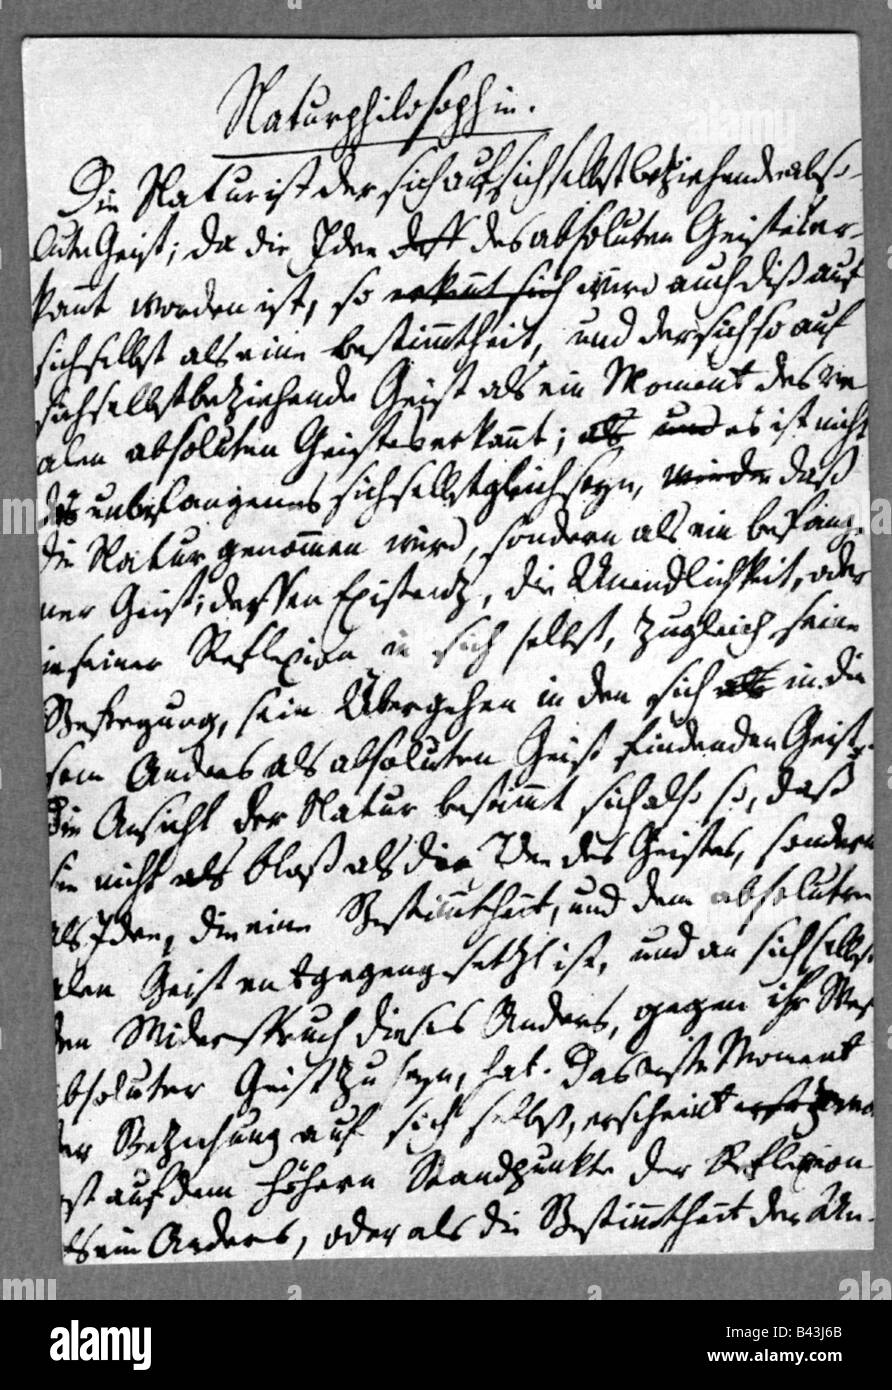 Naturphilosophie.
Die Natur ist der sich auf sich selbst beziehende abso-
lute Geist; da die Idee des absoluten Geistes er-
kannt worden ist, so erkennt sich wird auch diß auf
sich selbst als eine Bestimmtheit, und der sich so auf
sich selbst beziehende Geist als ein Moment des re
alen absoluten Geistes erkannt; als und es ist nicht
das unbefangene sichselbstgleichseyn, daß
die Natur genommen wird, sondern als ein befang-
ner Geist; dessen Existenz, die Unendlichkeit, oder
in seiner Reflexion in sich selbst, zugleich seine
Befreyung, sein Übergehen in den sich als in die
sem Anders als absoluten Geist findenden Geist.
Die Ansicht der Natur bestimmt sich also so, daß
sie nicht als bloß als die Idee des Geistes, sondern
als Idee, die eine Bestimmtheit, und dem absoluten
alen Geist entgegengesetzt ist, und an sich selbst
den Widerspruch dieses Anders, gegen ihr Wesen
absoluter Geist zu seyn, hat. Das erste Moment
der Beziehung auf sich selbst, erscheint
ist auf dem höhern Standpunkte der Reflexion
als ein Anders, oder als die Bestimmtheit der Un-
alamy
Image ID: B43J6B
www.alamy.com